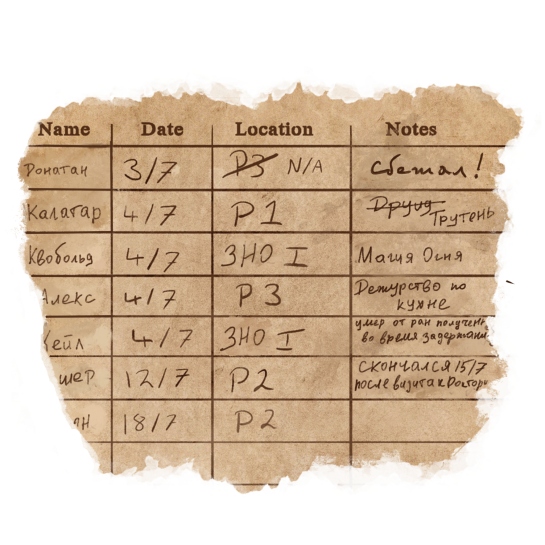 Name Date Location Notes
Донатан 3/7 P3 N/A сбежал!
Калагар 4/7 P1 Друид Трутень
Квобольд 4/7 ЗНО I Магия Огня
Алекс 4/7 P3 Дежурство по
кухне
Кейл 4/7 ЗНО I умер от ран получен
во время задержани
шер 12/7 P2 скончался 15/7
после визита к Доктору
ян 18/7 P2